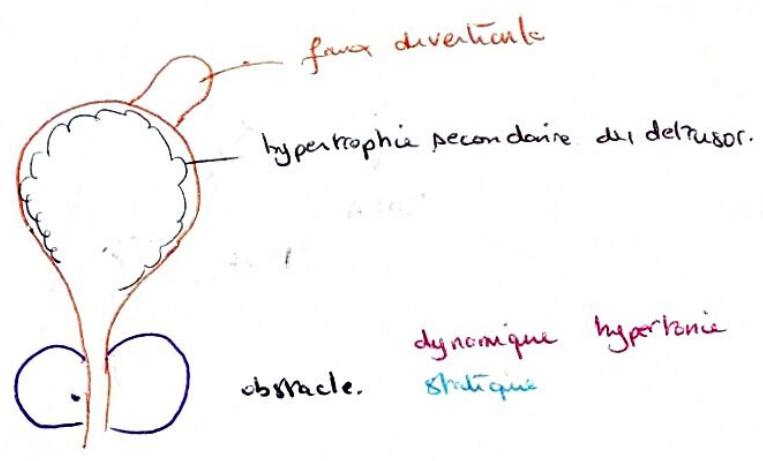 faux diverticule
hypertrophie secondaire du detrusor.
dynamique hypertonie
obstacle. statique